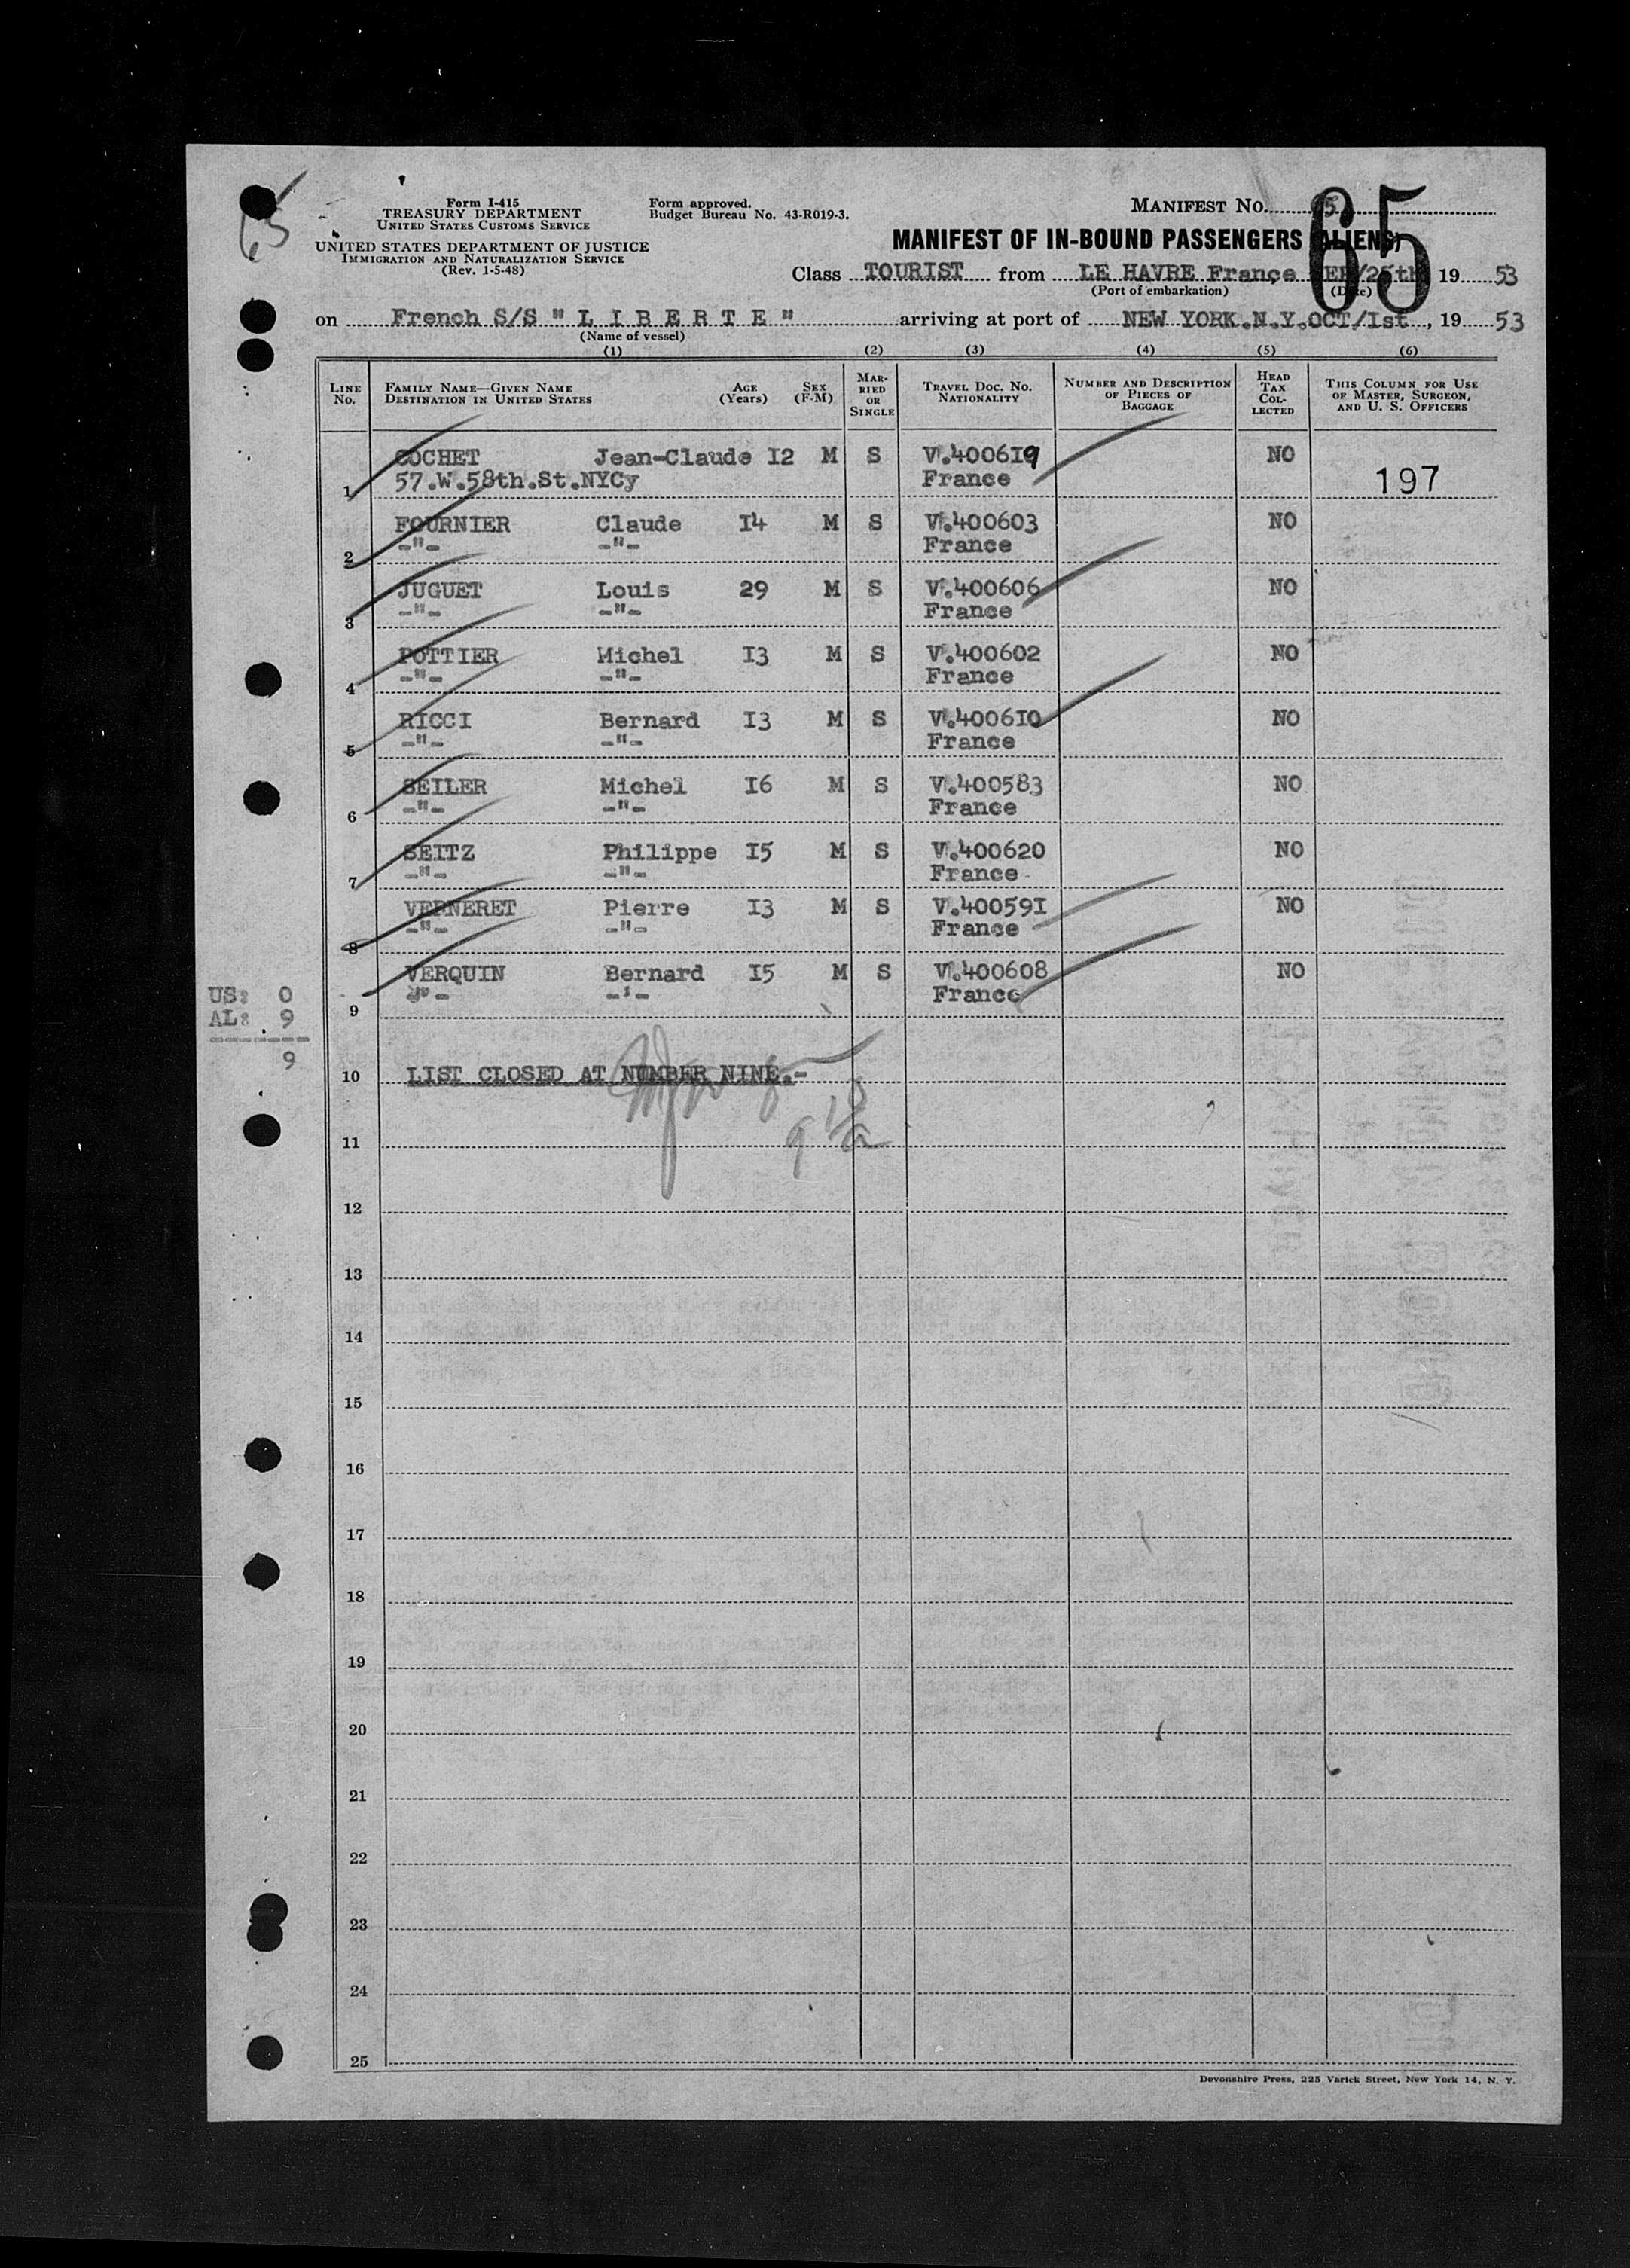 65
Form I-415
TREASURY DEPARTMENT
UNITED STATES CUSTOMS SERVICE
UNITED STATES DEPARTMENT OF JUSTICE
IMMIGRATION AND NATURALIZATION SERVICE
(Rev. 1-5-48)
Form approved.
Budget Bureau No. 43-R019-3.
MANIFEST NO.
65
MANIFEST OF IN-BOUND PASSENGERS (ALIENS)
Class TOURIST from LE HAVRE France SEP/25th 19 53
(Port of embarkation) (Date)
on French S/S " L I B E R T E " arriving at port of NEW YORK.N.Y.OCT/Ist , 19 53
(Name of vessel)
(1) (2) (3) (4) (5) (6)
LINE No. FAMILY NAME—GIVEN NAME DESTINATION IN UNITED STATES AGE (Years) SEX (F-M) MARRIED OR SINGLE TRAVEL DOC. NO. NATIONALITY NUMBER AND DESCRIPTION OF PIECES OF BAGGAGE HEAD TAX COLLECTED THIS COLUMN FOR USE OF MASTER, SURGEON, AND U. S. OFFICERS
COCHET Jean-Claude I2 M S V.400619 NO
1 57.W.58th.St.NYCy France 197
FOURNIER Claude I4 M S V.400603 NO
2 -"- -"- France
JUGUET Louis 29 M S V.400606 NO
3 -"- -"- France
POTTIER Michel I3 M S V.400602 NO
4 -"- -"- France
RICCI Bernard I3 M S V.4006I0 NO
5 -"- -"- France
SEILER Michel I6 M S V.400583 NO
6 -"- -"- France
SEITZ Philippe I5 M S V.400620 NO
7 -"- -"- France
VERNERET Pierre I3 M S V.40059I NO
8 -"- -"- France
VERQUIN Bernard I5 M S V.400608 NO
9 -"- France
US: 0
AL: 9
9
10 LIST CLOSED AT NUMBER NINE.-
11
12
13
14
15
16
17
18
19
20
21
22
23
24
25
Devonshire Press, 225 Varick Street, New York 14, N. Y.